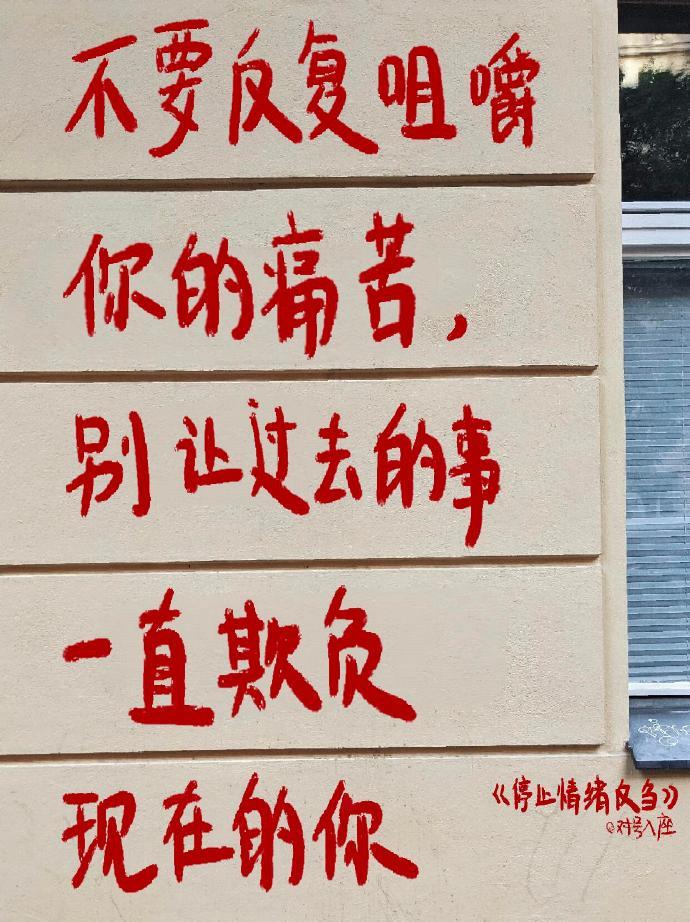 不要反复咀嚼
你的痛苦，
别让过去的事
一直欺负
现在的你
《停止情绪反刍》
@对号入座